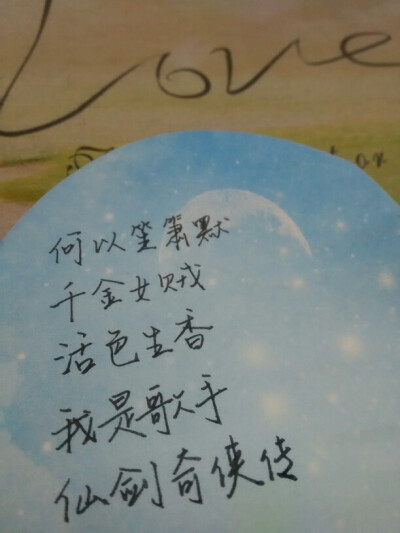 Love
何以笙箫默
千金女贼
活色生香
我是歌手
仙剑奇侠传